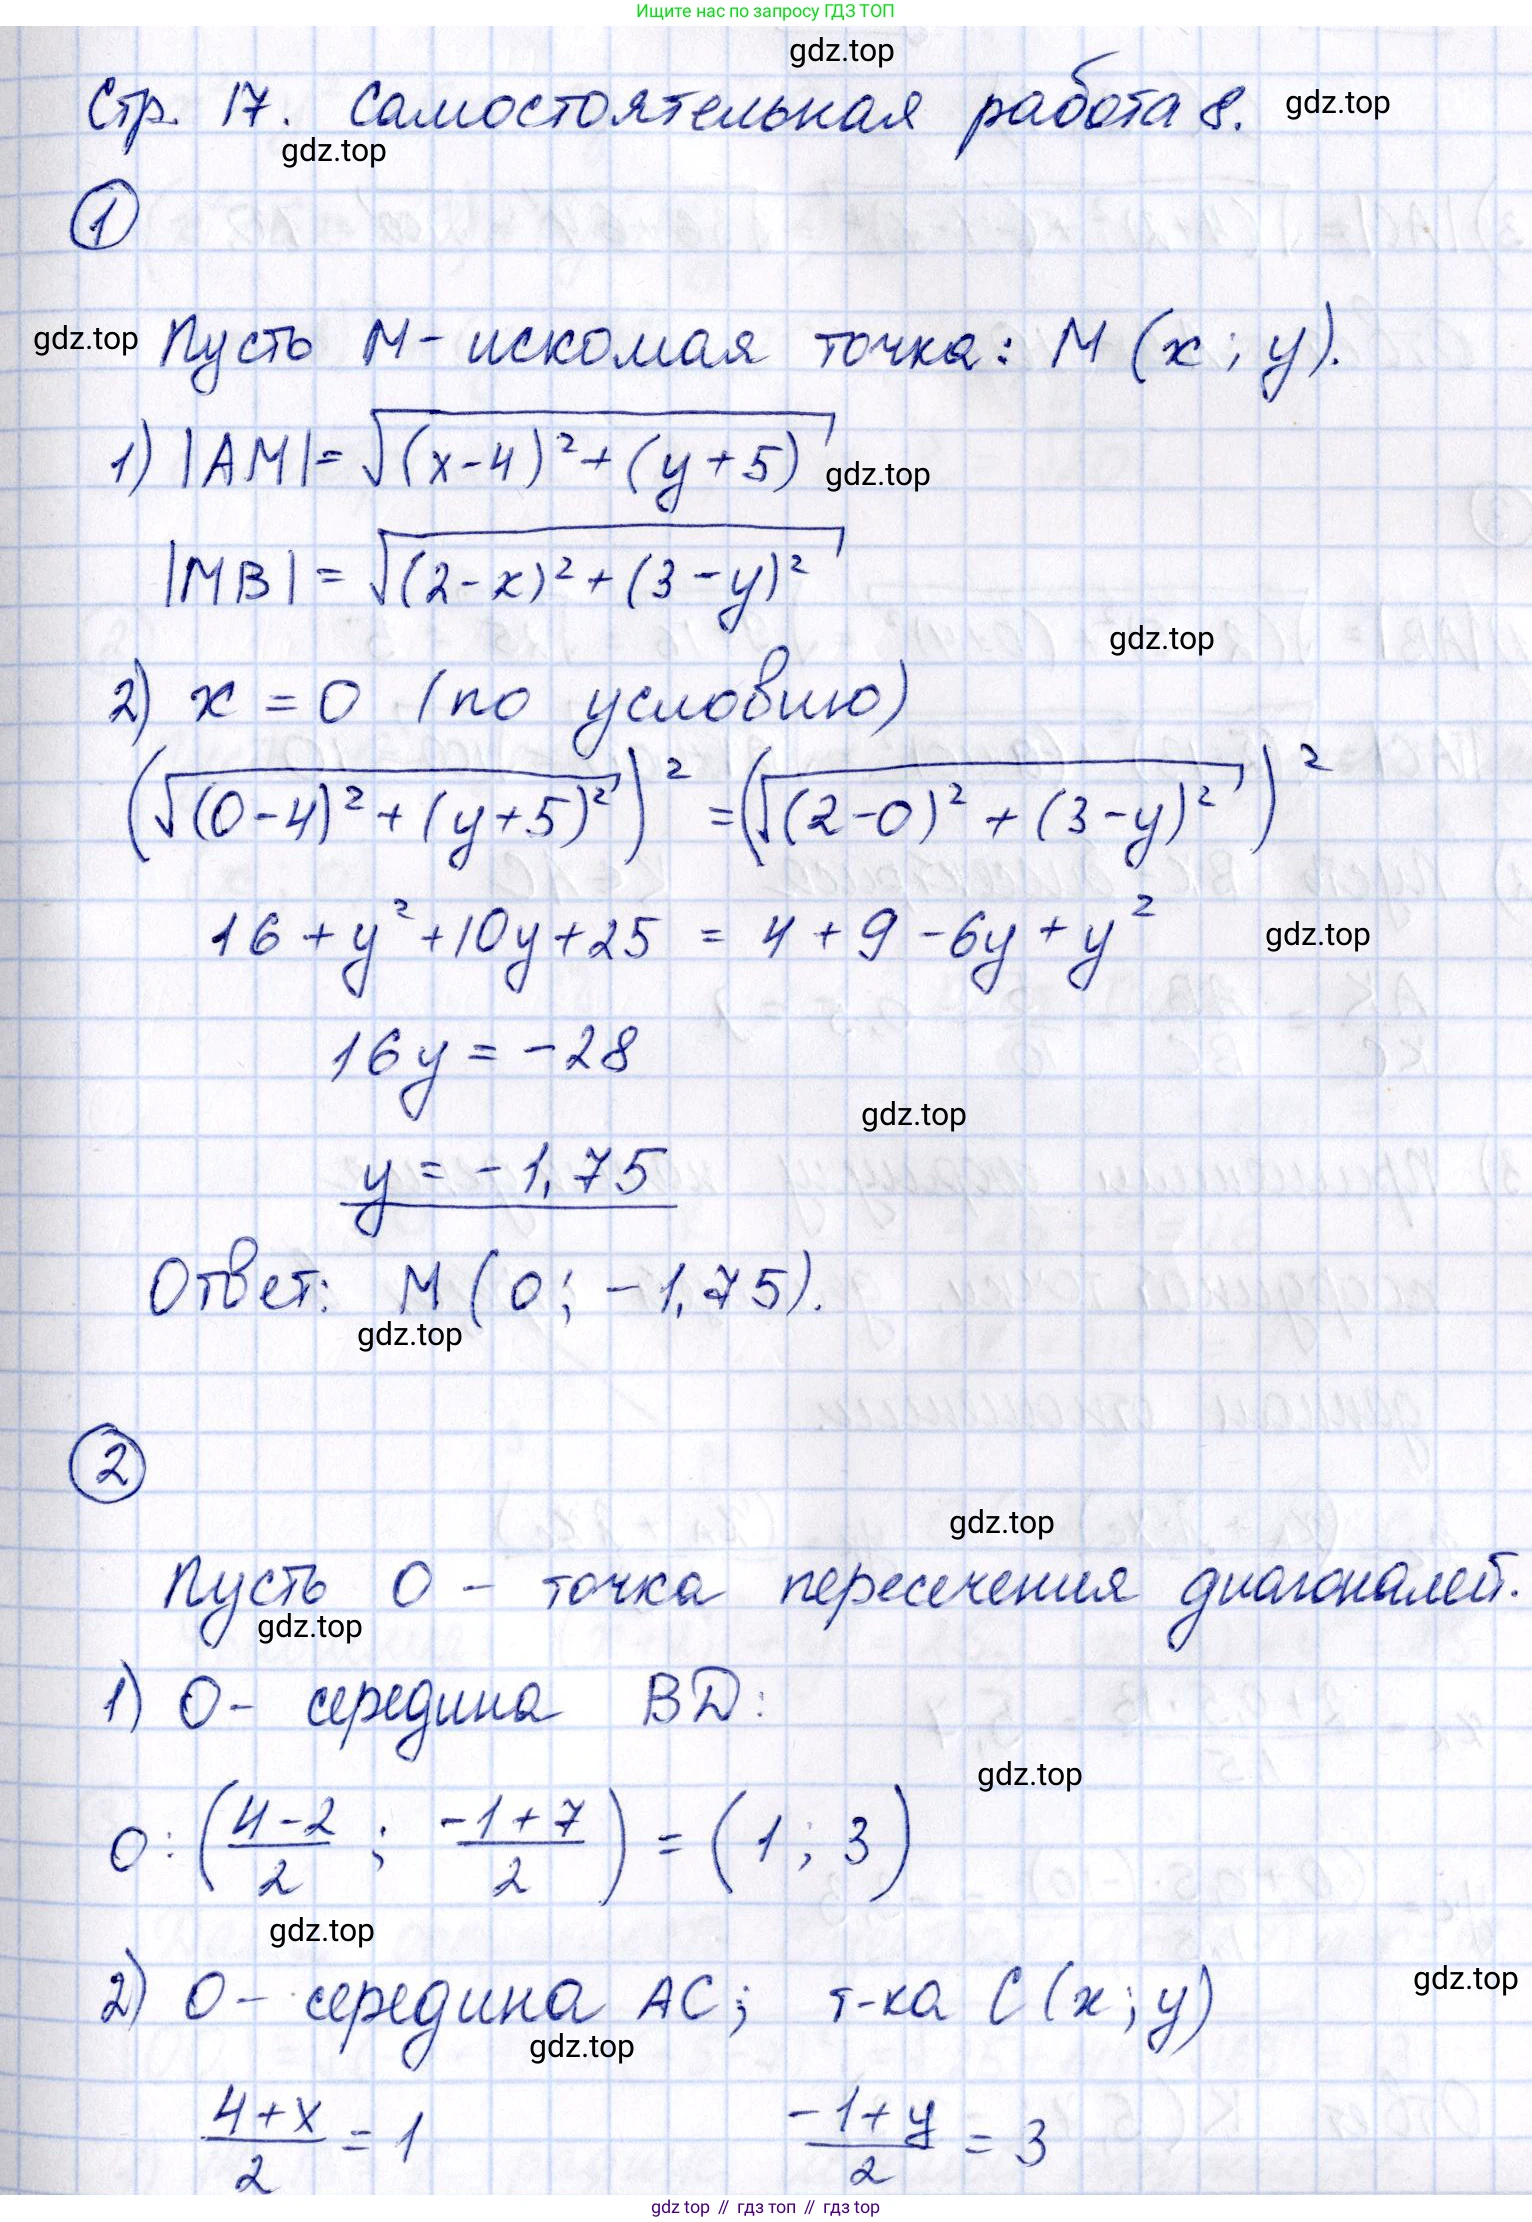 Ищите нас по запросу ГДЗ ТОП
gdz.top
Стр. 17. Самостоятельная работа 8. gdz.top
gdz.top
1
gdz.top Пусть M - искомая точка: M (x ; y).
1) |AM| = √((x-4)² + (y+5) gdz.top
|MB| = √((2-x)² + (3-y)²
gdz.top
2) x = 0 (по условию)
(√((0-4)² + (y+5)²)² = (√((2-0)² + (3-y)²)²
16 + y² + 10y + 25 = 4 + 9 - 6y + y² gdz.top
16y = -28
gdz.top
y = -1,75
Ответ: M (0 ; -1,75).
gdz.top
2
gdz.top
Пусть O - точка пересечения диагоналей.
gdz.top
1) O - середина BD:
gdz.top
O: ((4-2)/2 ; (-1+7)/2) = (1 ; 3)
gdz.top
2) O - середина AC; т-ка C (x ; y) gdz.top
gdz.top
(4+x)/2 = 1 (-1+y)/2 = 3
gdz.top // гдз топ // гдз top